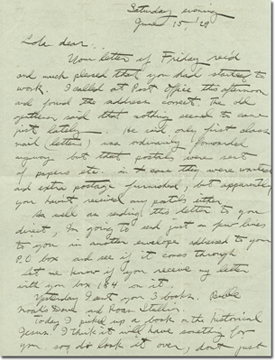 Saturday evening
June 15, '29
Lola dear:
Your letter of Friday rec'd
and much pleased that you had started to
work. I called at Post Office this afternoon
and found the address correct. The old
said that nothing seemed to come
just lately. He said only first class
mail (letters) was ordinarily forwarded
anyway but that postals were sort
of papers etc. in case they were wanted
and extra postage furnished, but apparently
you haven't received any postals either.
As well as sending this letter to you
direct, I'm going to send just a few lines
to you in another envelope addressed to your
P.O. box and see if it comes through.
Let me know if you receive my letter
with you box 164 on it.
Yesterday I sent you 3 books.
and Roan Stallion.
Today I picked up a book on the historical
Jesus. I think it will have something for
you so do look it over, don't just